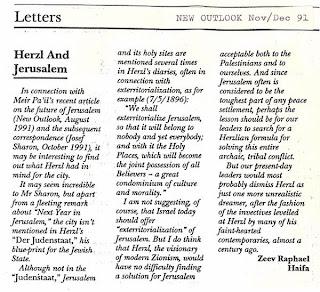 Letters
NEW OUTLOOK Nov/Dec 91
Herzl And
Jerusalem
In connection with
Meir Pa'il's recent article
on the future of Jerusalem
(New Outlook, August
1991) and the subsequent
correspondence (Josef
Sharon, October 1991), it
may be interesting to find
out what Herzl had in
mind for the city.
It may seem incredible
to Mr Sharon, but apart
from a fleeting remark
about "Next Year in
Jerusalem," the city isn't
mentioned in Herzl's
"Der Judenstaat," his
blue-print for the Jewish
State.
Although not in the
"Judenstaat," Jerusalem
and its holy sites are
mentioned several times
in Herzl's diaries, often in
connection with
exterritorialization, as for
example (7/5/1896):
"We shall
extraterritorialize Jerusalem,
so that it will belong to
nobody and yet everybody;
and with it the Holy
Places, which will become
the joint possession of all
Believers – a great
condominium of culture
and morality."
I am not suggesting, of
course, that Israel today
should offer
"exterritorialization" of
Jerusalem. But I do think
that Herzl, the visionary
of modern Zionism, would
have no difficulty finding
a solution for Jerusalem
acceptable both to the
Palestinians and to
ourselves. And since
Jerusalem often is
considered to be the
toughest part of any peace
settlement, perhaps the
lesson should be for our
leaders to search for a
Herzlian formula for
solving this entire
archaic, tribal conflict.
But our present-day
leaders would most
probably dismiss Herzl as
just one more unrealistic
dreamer, after the fashion
of the invectives levelled
at Herzl by many of his
faint-hearted
contemporaries, almost a
century ago.
Zeev Raphael
Haifa